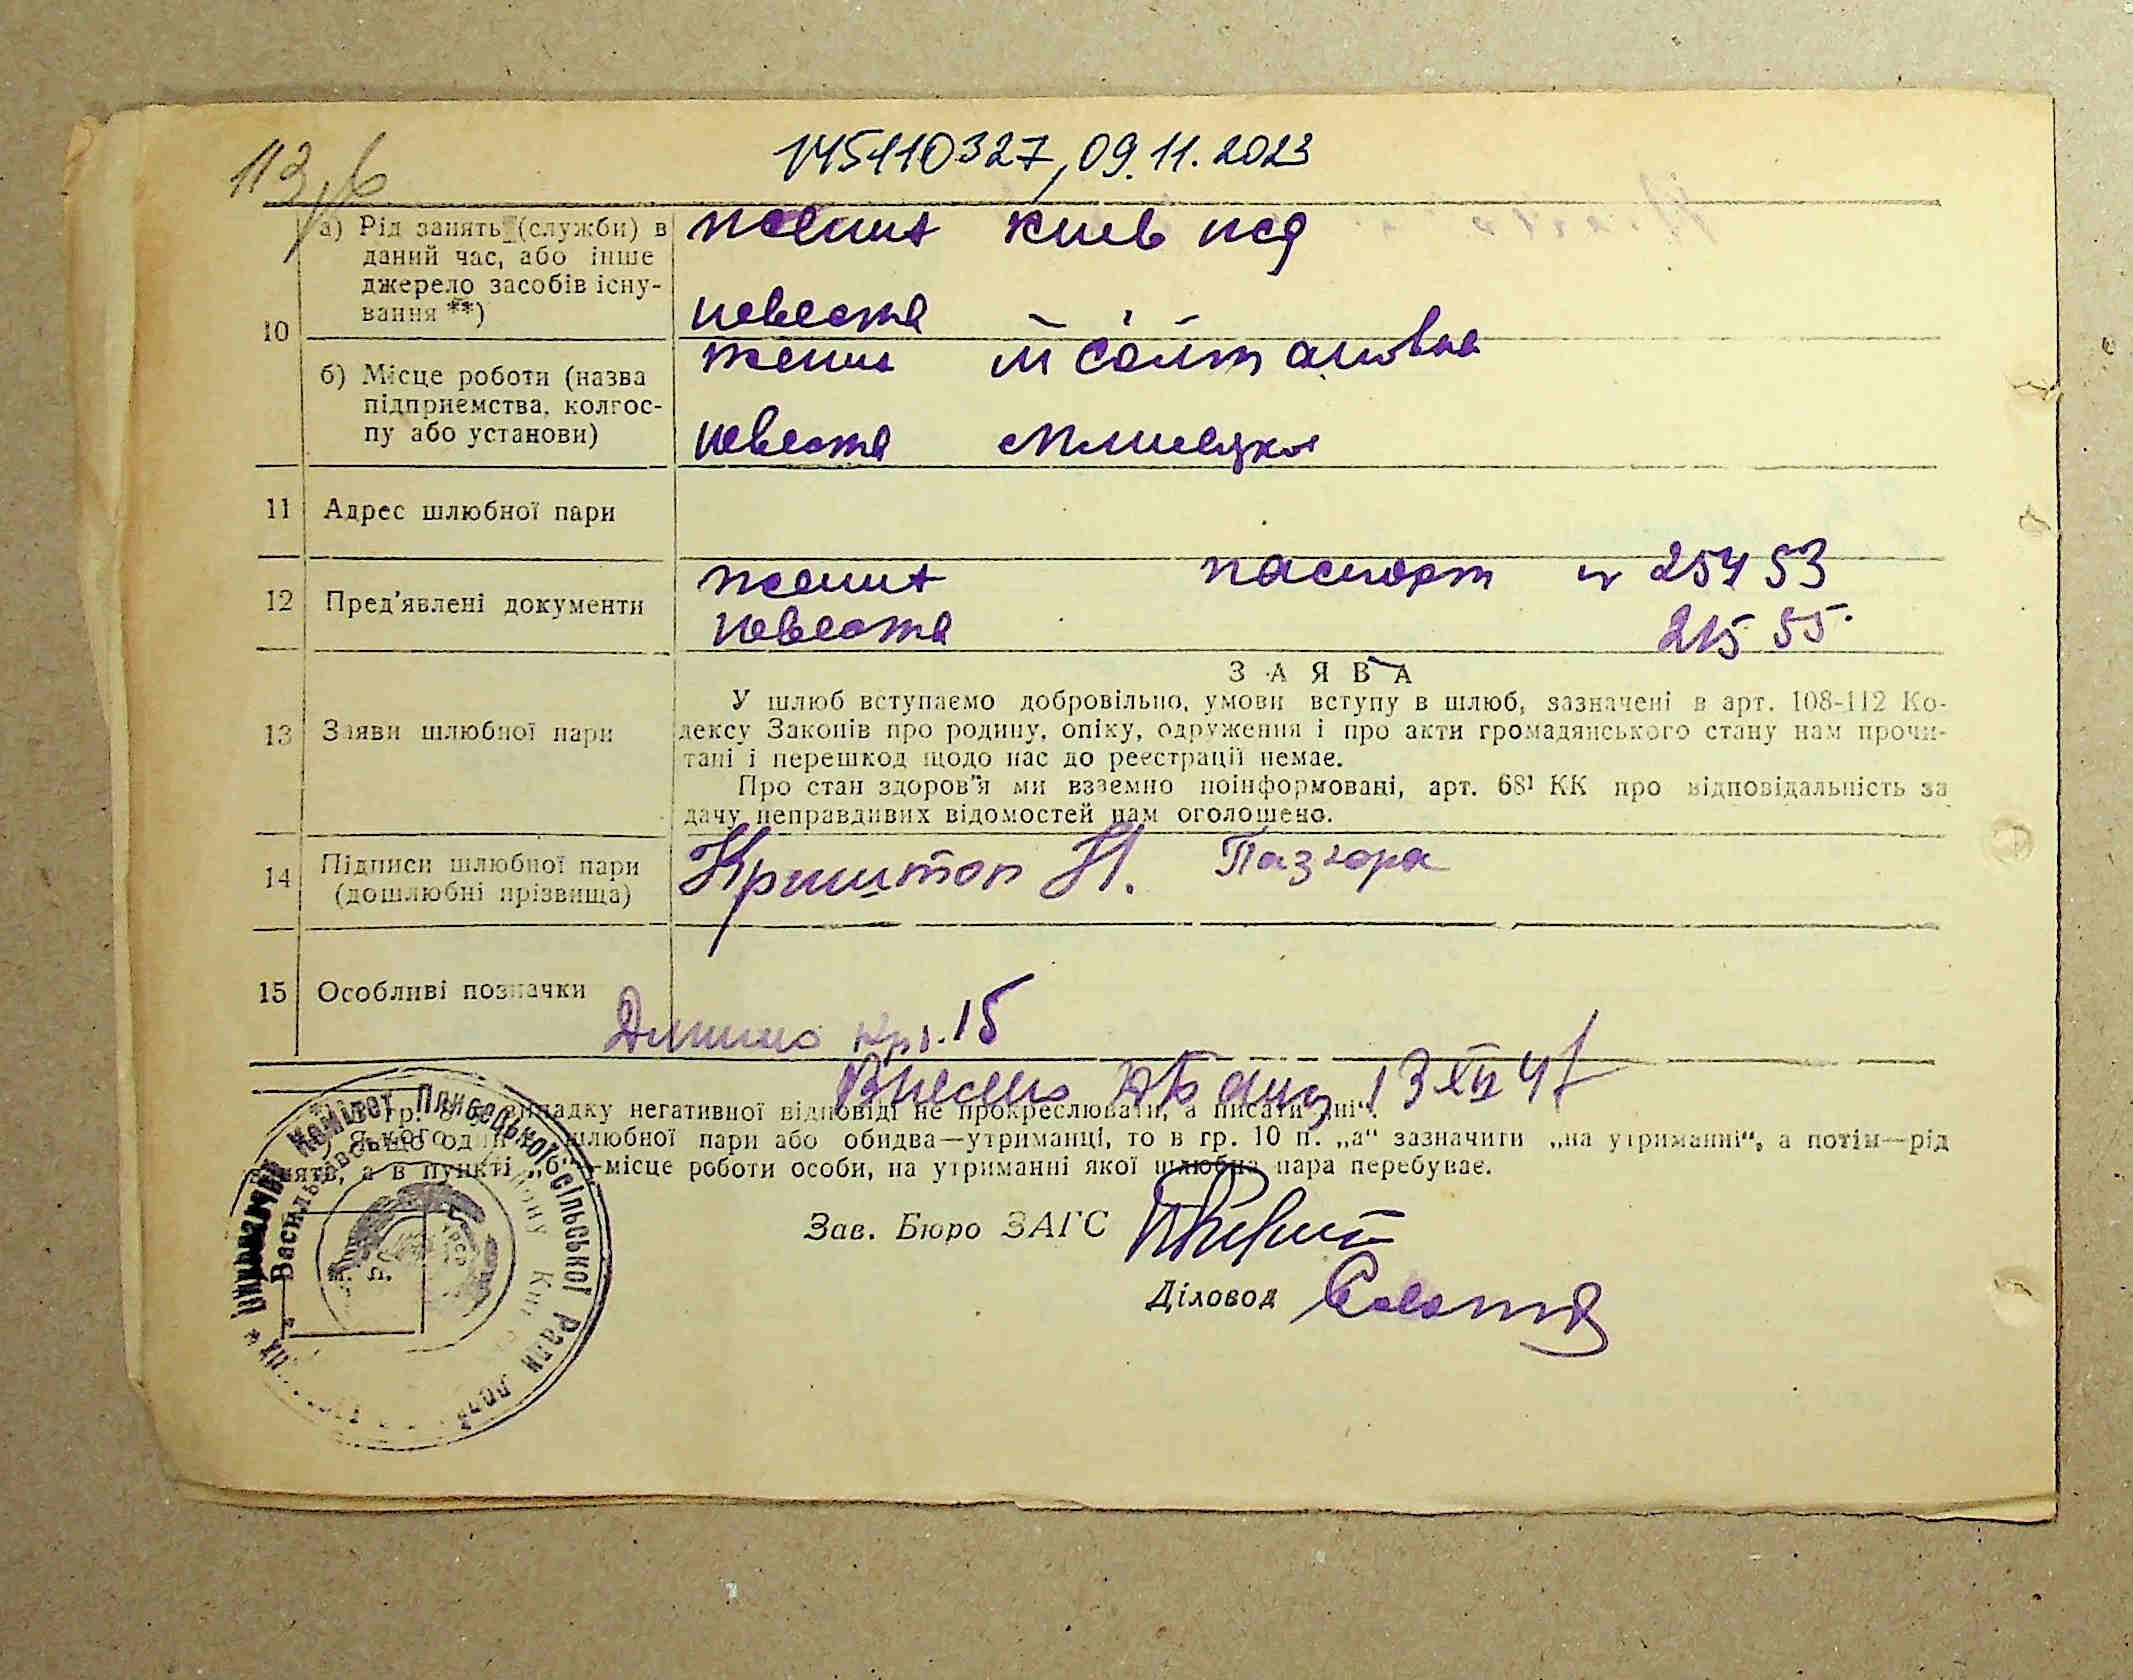 113
145110327, 09.11.2023
10
а) Рід занять (служби) в
даний час, або інше
джерело засобів існу-
вання **)
жених Киев
невеста
б) Місце роботи (назва
підприємства, колгос-
пу або установи)
жених
невеста
11 Адрес шлюбної пари
12 Пред'явлені документи
жених паспорт 25453
невеста 21555.
13 Заяви шлюбної пари
ЗАЯВА
У шлюб вступаємо добровільно, умови вступу в шлюб, зазначені в арт. 108-112 Ко-
дексу Законів про родину, опіку, одруження і про акти громадянського стану нам прочи-
тані і перешкод щодо нас до реєстрації немає.
Про стан здоров"я ми взаємно поінформовані, арт. 68¹ КК про відповідальність за
дачу неправдивих відомостей нам оголошено.
14 Підписи шлюбної пари
(дошлюбні прізвища)
Криштоп Н. Пазюра
15 Особливі позначки
15
Внесено 13 XII 47
випадку негативної відповіді не прокреслювати, а писати „ні“.
шлюбної пари або обидва—утриманці, то в гр. 10 п. „а“ зазначити „на утриманні“, а потім—рід
занять, а в пункті „б“—місце роботи особи, на утриманні якої шлюбна пара перебуває.
Виконавчий Комітет Плисецької сільської Ради
Васильківського району
Зав. Бюро ЗАГС
Діловод